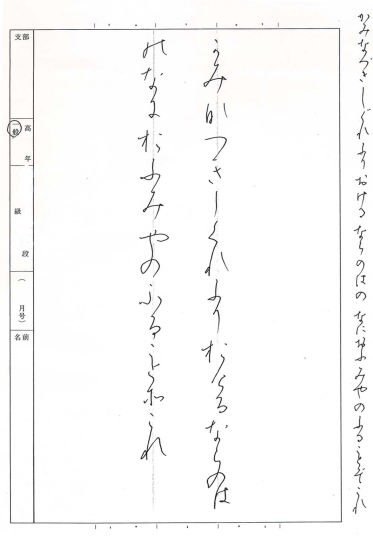 かみなづきしぐれふりおけるならのはのなにおふみやのふることぞこれ
かみ那つきしくれふりおけるならのは
のなにおふみやのふることそこれ
支部
高年
一般
級 段
( 月号)
名前